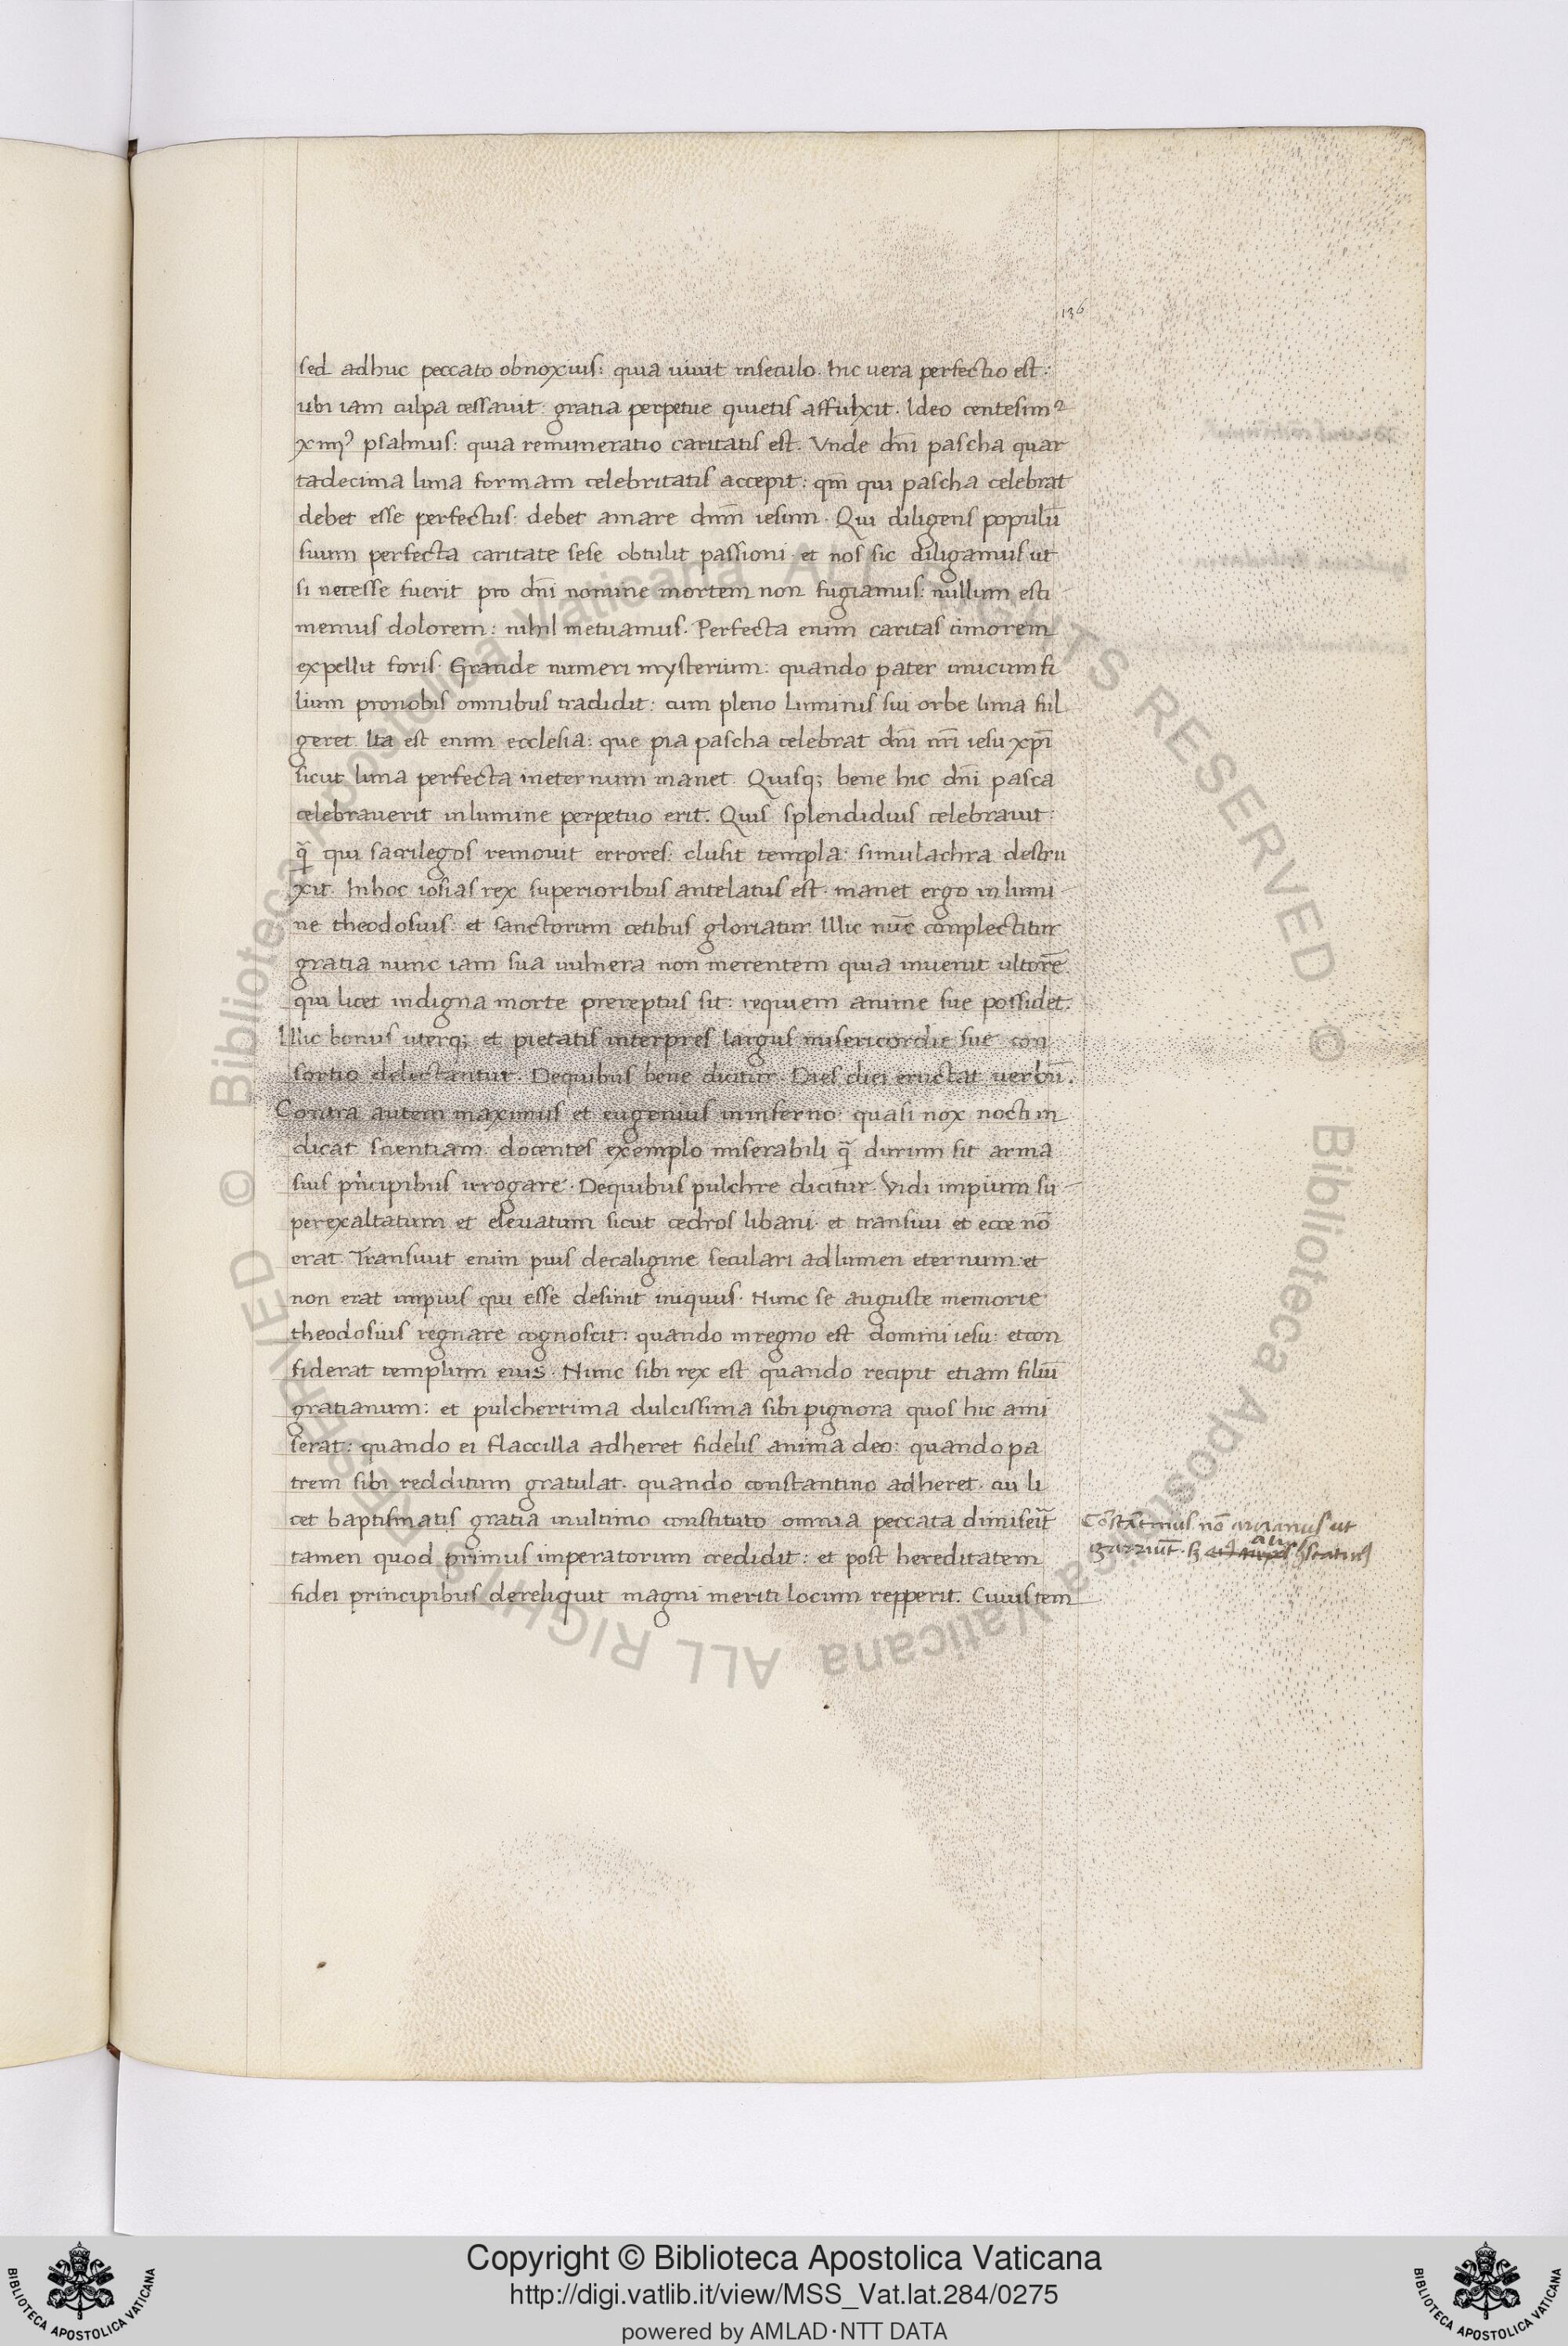 136
sed adhuc peccato obnoxius: quia uiuit inseculo. hic uera perfectio est:
ubi iam culpa cessauit: gratia perpetue quietis affulxit. Ideo centesimꝰ
xiiiiꝰ psalmus: quia remuneratio caritatis est. Vnde dn̄i pascha quar
tadecima luna formam celebritatis accepit: qm̄ qui pascha celebrat
debet esse perfectus: debet amare dnm̄ iesum. Qui diligens populū
suum perfecta caritate sese obtulit passioni. et nos sic diligamus ut
si necesse fuerit pro dn̄i nomine mortem non fugiamus: nullum esti
memus dolorem: nihil metuamus. Perfecta enim caritas timorem
expellit foris. Grande numeri mysterium: quando pater unicum fi
lium pronobis omnibus tradidit: cum pleno luminis sui orbe luna ful
geret. Ita est enim ecclesia: que pia pascha celebrat dn̄i nr̄i iesu xp̄i
sicut luna perfecta ineternum manet. Quisq; bene hic dn̄i pasca
celebrauerit inlumine perpetuo erit. Quis splendidius celebrauit:
q̄ qui sacrilegos remouit errores: clusit templa: simulachra destru
xit. Inhoc iosias rex superioribus antelatus est. manet ergo in lumi
ne theodosius: et sanctorum cetibus gloriatur. Illic nūc complectitur
gratia nunc iam sua uulnera non merentem quia inuenit ultorē.
qui licet indigna morte prereptus sit: requiem anime sue possidet.
Illic bonus uterq; et pietatis interpres largus misericordie sue con
sortio delectantur. Dequibus bene dicitur. Dies diei eructat uerbū.
Contra autem maximus et eugenius ininferno: quasi nox nocti in
dicat scientiam. docentes exemplo miserabili q̄ durum sit arma
suis prīcipibus irrogare. Dequibus pulchre dicitur. Vidi impium su
perexaltatum et eleuatum sicut cedros libani. et transiui et ecce nō
erat. Transiuit enim pius decaligine seculari adlumen eternum: et
non erat impius qui esse desinit iniquus. Nunc se auguste memorie
theodosius regnare cognoscit: quando inregno est domini iesu: etcon
siderat templum eius. Nunc sibi rex est quando recipit etiam filiū
gratianum: et pulcherrima dulcissima sibi pignora quos hic ami
serat: quando ei flaccilla adheret fidelis anima deo: quando pa
trem sibi redditum gratulat. quando constantino adheret. cui li
cet baptismatis gratia inultimo constituto omnia peccata dimiserit
tamen quod primus imperatorum credidit: et post hereditatem
fidei principibus dereliquit magni meriti locum repperit. Cuius tem
Cōstātinus nō arrianus ut
Copyright © Biblioteca Apostolica Vaticana
http://digi.vatlib.it/view/MSS_Vat.lat.284/0275
powered by AMLAD·NTT DATA
BIBLIOTECA APOSTOLICA VATICANA
BIBLIOTECA APOSTOLICA VATICANA
© Biblioteca Apostolica Vaticana ALL RIGHTS RESERVED © Biblioteca Apostolica Vaticana ALL RIGHTS RESERVED